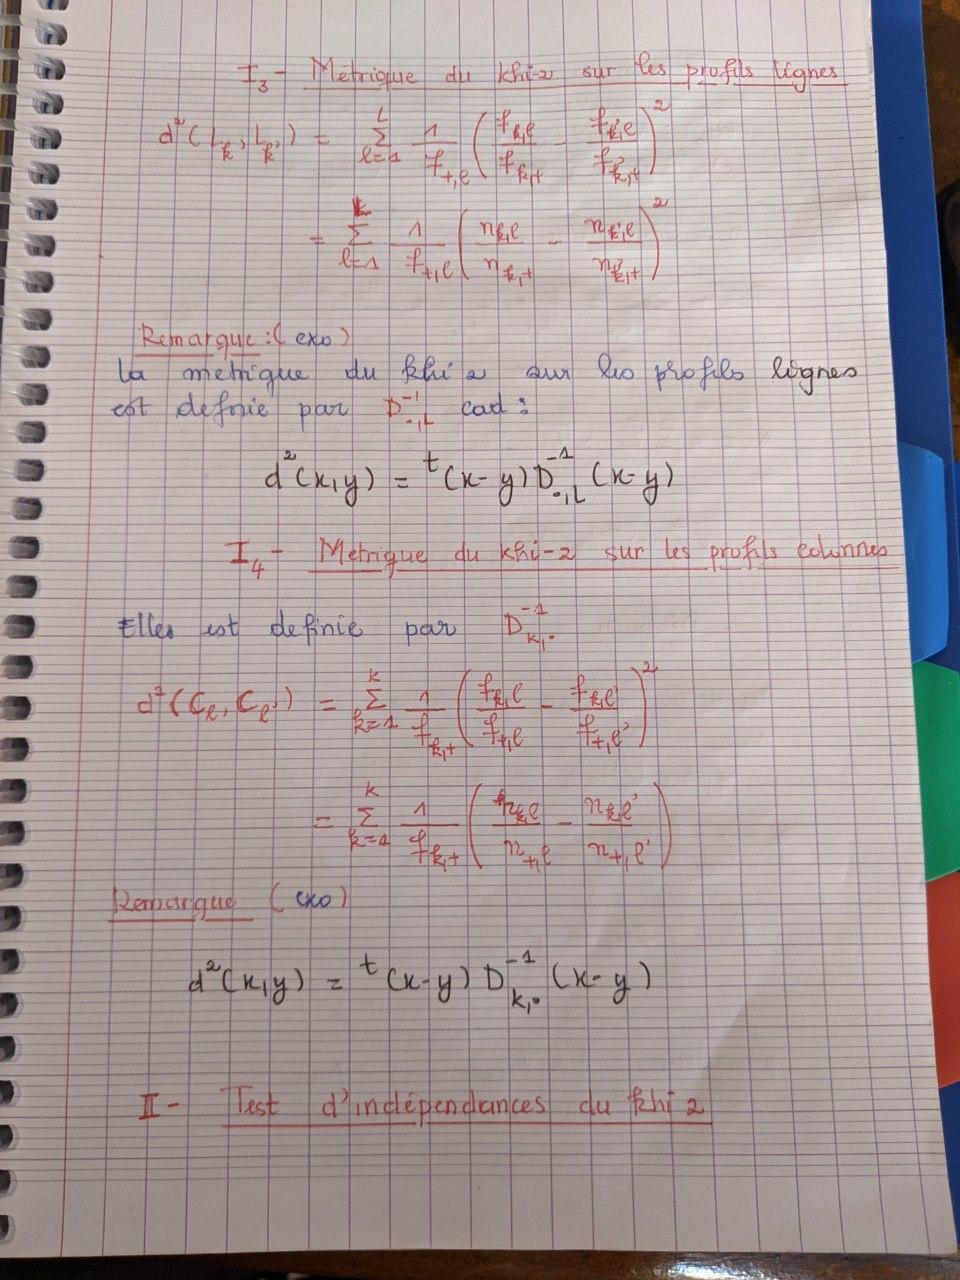 I₃ - Métrique du khi-2 sur les profils lignes
d²(L_k, L_k') = Σ_{l=1}^{L} 1/f_{+,l} (f_{k,l}/f_{k,+} - f_{k',l}/f_{k',+})²
= Σ_{l=1}^{k} 1/f_{+,l} (n_{k,l}/n_{k,+} - n_{k',l}/n_{k',+})²
Remarque : (exo)
la metrique du khi 2 sur les profils lignes
est definie par D⁻¹_{•,L} cad :
d²(x,y) = ᵗ(x-y) D⁻¹_{•,L} (x-y)
I₄ - Metrique du khi-2 sur les profils colonnes
Elles est definie par D⁻¹_{k,•}
d²(C_l, C_l') = Σ_{k=1}^{k} 1/f_{k,+} (f_{k,l}/f_{+,l} - f_{k,l'}/f_{+,l'})²
= Σ_{k=1}^{k} 1/f_{k,+} (n_{k,l}/n_{+,l} - n_{k,l'}/n_{+,l'})
Remarque (exo)
d²(x,y) = ᵗ(x-y) D⁻¹_{k,•} (x-y)
II - Test d'indépendances du khi 2